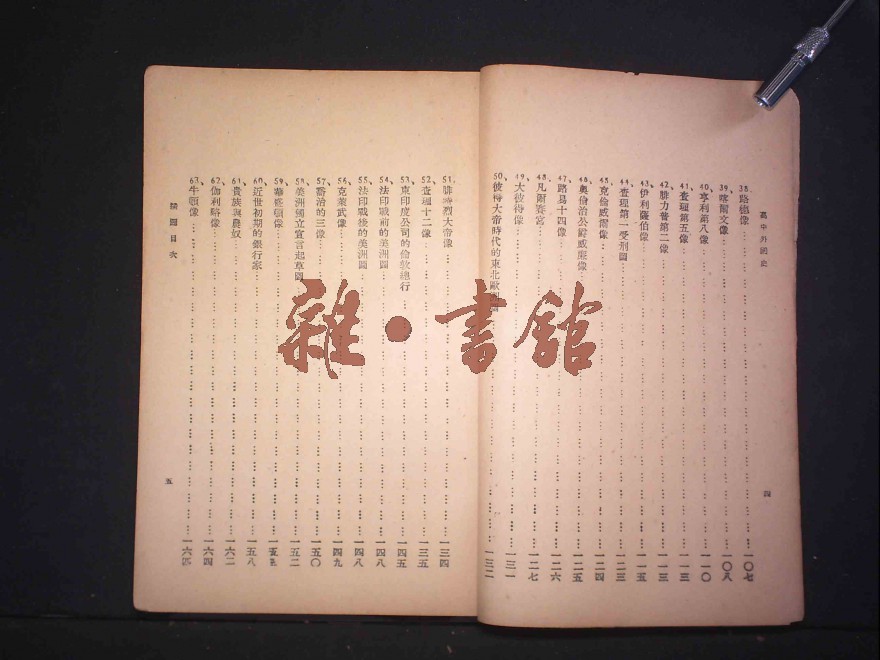 高中外國史
38、路德像……一〇七
39、喀爾文像……一〇八
40、亨利第八像……一一〇
41、查理第五像……一一三
42、腓力普第二像……一一三
43、伊利薩伯像……一一五
44、查理第一受刑圖……一二三
45、克倫威爾像……一二四
46、奧倫治公爵威廉像……一二五
47、路易十四像……一二六
48、凡爾賽宮……一二七
49、大彼得像……一三一
50、彼得大帝時代的東北歐洲圖……一三二
四
51、腓特烈大帝像……一三四
52、查理十二像……一三五
53、東印度公司的倫敦總行……一四五
54、法印戰前的美洲圖……一四八
55、法印戰後的美洲圖……一四八
56、克萊武像……一四九
57、喬治的三像……一五〇
58、美洲獨立宣言起草圖……一五二
59、華盛頓像……一五五
60、近世初期的銀行家……一五八
61、貴族與農奴……一六二
62、伽利略像……一六四
63、牛頓像……一六四
插圖目次
五
雜·書館